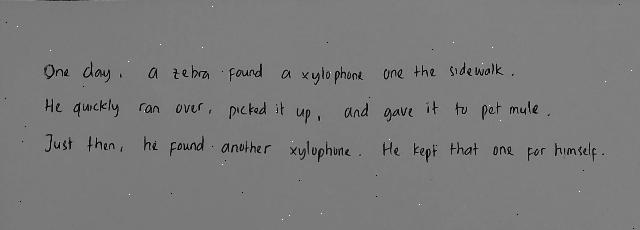 One day, a zebra found a xylophone one the sidewalk.
He quickly ran over, picked it up, and gave it to pet mule.
Just then, he found another xylophone. He kept that one for himself.